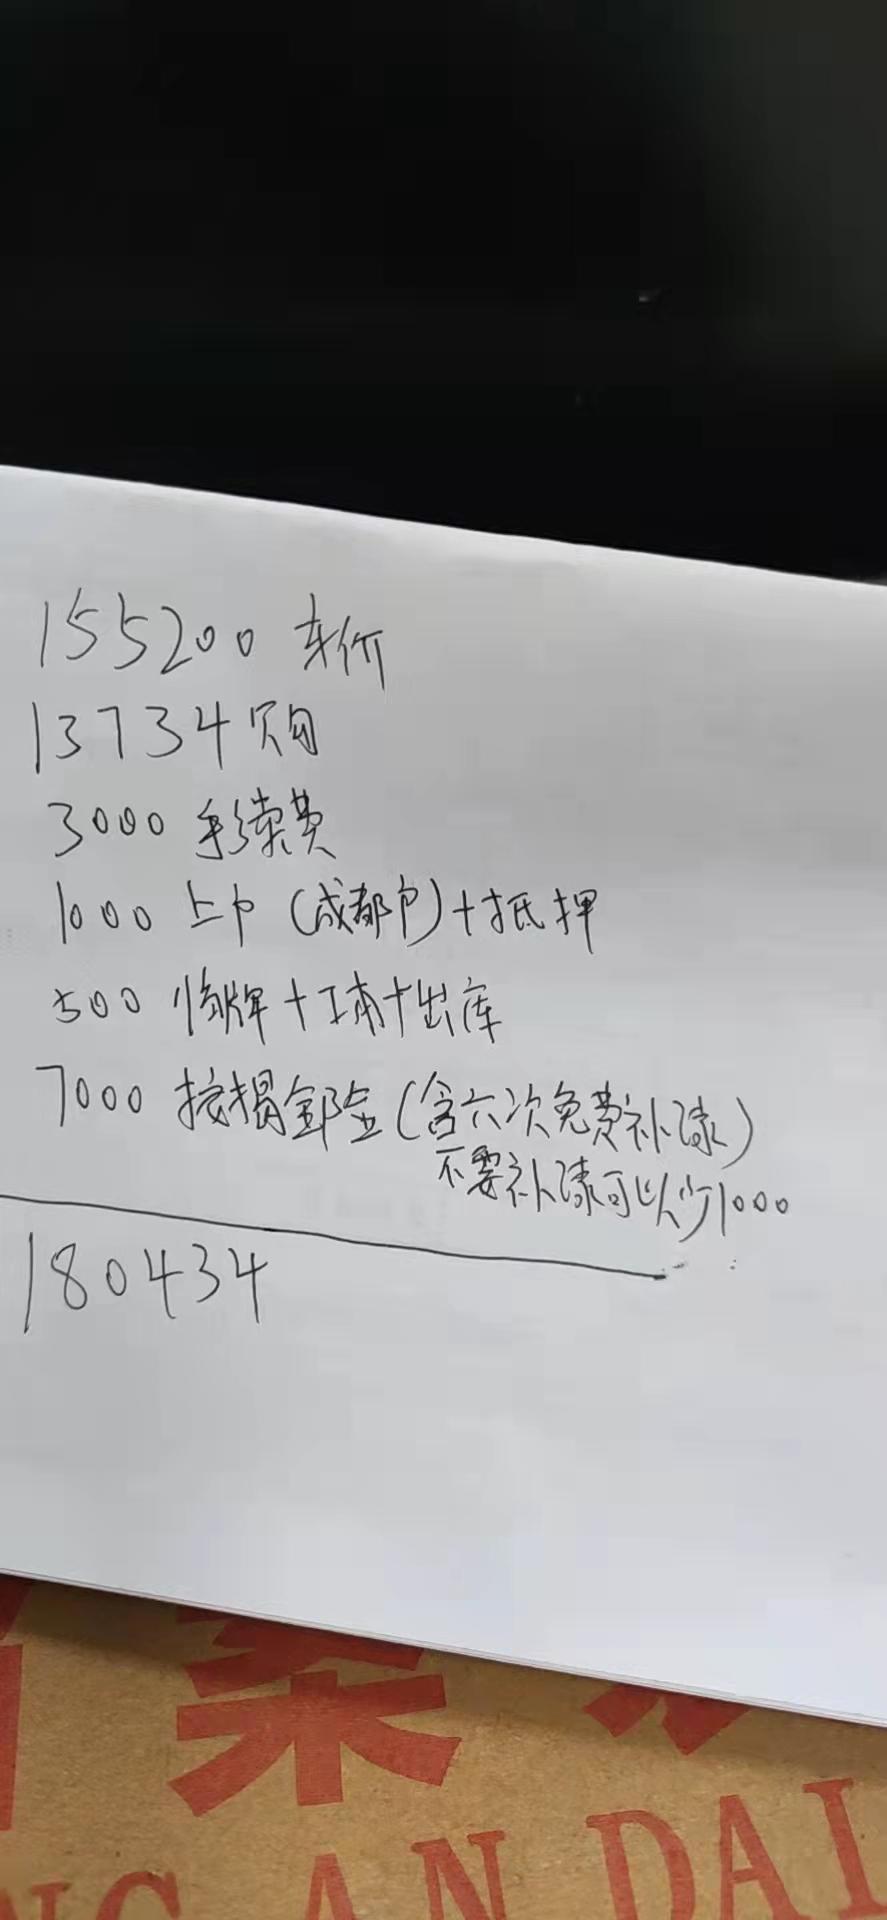 155200 车价
13734 购
3000 手续费
1000 上户(成都户)+抵押
500 临牌+工本+出库
7000 按揭全险(含六次免费补漆)
不要补漆可以少1000
180434
AN DAI